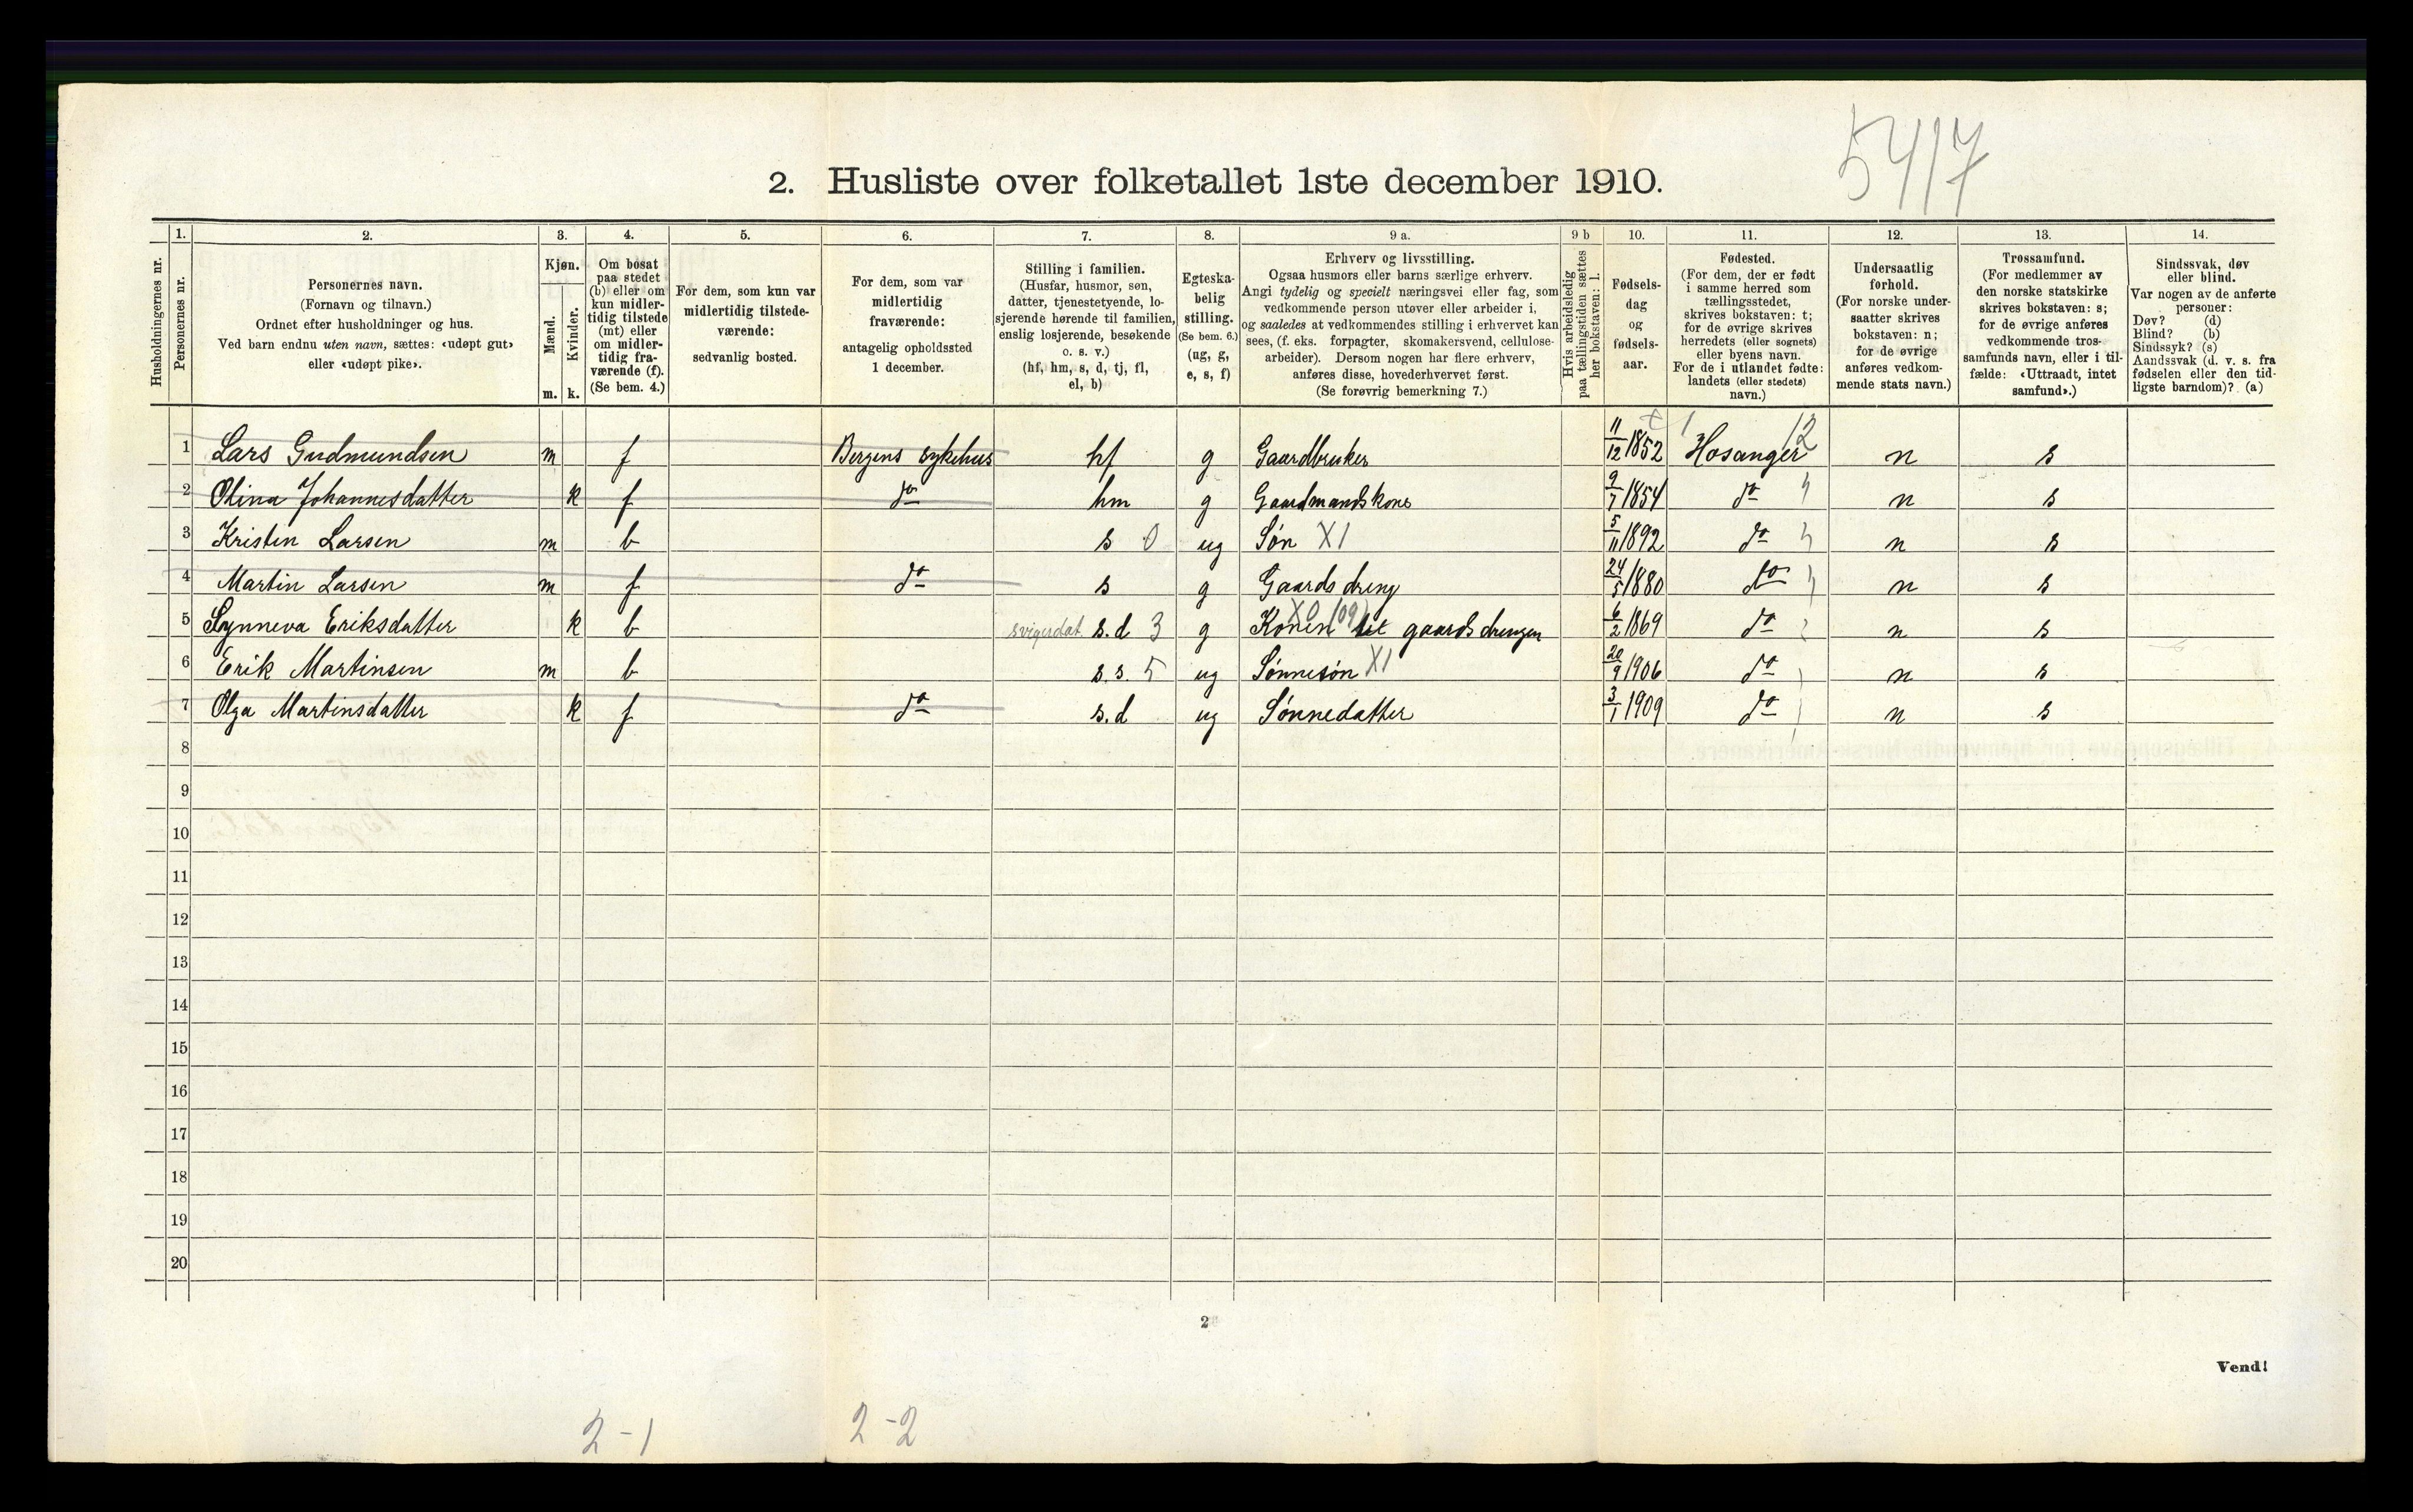 5417
2. Husliste over folketallet 1ste december 1910.
Husholdningernes nr.
1. Personernes nr.
2. Personernes navn.
(Fornavn og tilnavn.)
Ordnet efter husholdninger og hus.
Ved barn endnu uten navn, sættes: «udøpt gut»
eller «udøpt pike».
3. Kjøn.
Mænd. Kvinder.
m. k.
4. Om bosat
paa stedet
(b) eller om
kun midler-
tidig tilstede
(mt) eller
om midler-
tidig fra-
værende (f).
(Se bem. 4.)
5. For dem, som kun var
midlertidig tilstede-
værende:
sedvanlig bosted.
6. For dem, som var
midlertidig
fraværende:
antagelig opholdssted
1 december.
7. Stilling i familien.
(Husfar, husmor, søn,
datter, tjenestetyende, lo-
sjerende hørende til familien,
enslig losjerende, besøkende
o. s. v.)
(hf, hm, s, d, tj, fl,
el, b)
8. Egteska-
belig
stilling.
(Se bem. 6.)
(ug, g,
e, s, f)
9 a. Erhverv og livsstilling.
Ogsaa husmors eller barns særlige erhverv.
Angi tydelig og specielt næringsvei eller fag, som
vedkommende person utøver eller arbeider i,
og saaledes at vedkommendes stilling i erhvervet kan
sees, (f. eks. forpagter, skomakersvend, cellulose-
arbeider). Dersom nogen har flere erhverv,
anføres disse, hovederhvervet først.
(Se forøvrig bemerkning 7.)
9 b Hvis arbeidsledig
paa tællingstiden sættes
her bokstaven: l.
10. Fødsels-
dag
og
fødsels-
aar.
11. Fødested.
(For dem, der er født
i samme herred som
tællingsstedet,
skrives bokstaven: t;
for de øvrige skrives
herredets (eller sognets)
eller byens navn.
For de i utlandet fødte:
landets (eller stedets)
navn.)
12. Undersaatlig
forhold.
(For norske under-
saatter skrives
bokstaven: n;
for de øvrige
anføres vedkom-
mende stats navn.)
13. Trossamfund.
(For medlemmer av
den norske statskirke
skrives bokstaven: s;
for de øvrige anføres
vedkommende tros-
samfunds navn, eller i til-
fælde: «Uttraadt, intet
samfund».)
14. Sindssvak, døv
eller blind.
Var nogen av de anførte
personer:
Døv? (d)
Blind? (b)
Sindssyk? (s)
Aandssvak (d. v. s. fra
fødselen eller den tid-
ligste barndom)? (a)
1 Lars Gudmundsen m f Bergens sykehus hf g Gaardbruker 11/12 1852 Hosanger 12 n s
2 Olina Johannesdatter k f do hm g Gaardmandskone 9/7 1854 do n s
3 Kristen Larsen m b s 0 ug Søn X1 5/11 1892 do n s
4 Martin Larsen m f do s g Gaardsdreng 24/5 1880 do n s
5 Synneva Eriksdatter k b svigerdat. s.d 3 g Konen til gaardsdrengen X0 (09) 6/2 1869 do n s
6 Erik Martinsen m b s.s. 5 ug Sønnesøn X1 20/9 1906 do n s
7 Olga Martinsdatter k f do s.d ug Sønnedatter 3/1 1909 do n s
8
9
10
11
12
13
14
15
16
17
18
19
20
2
Vend!
2-1 2-2